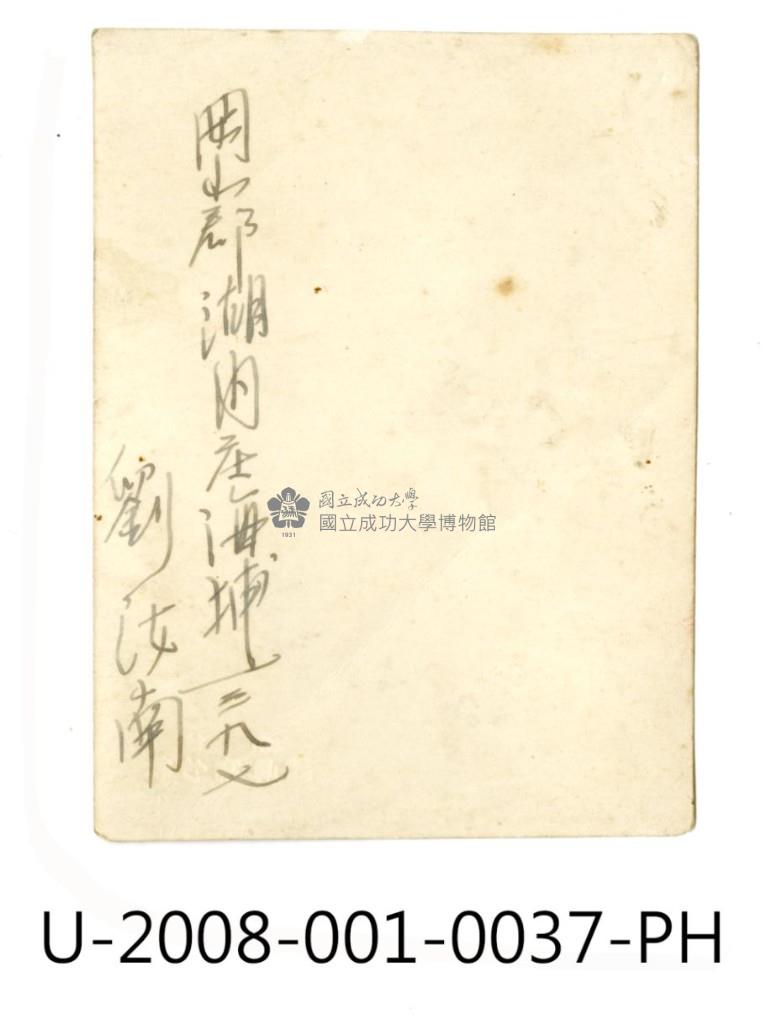 岡山郡湖内庄海埔一三九七
劉汝南
國立成功大學
國立成功大學博物館
1931
U-2008-001-0037-PH